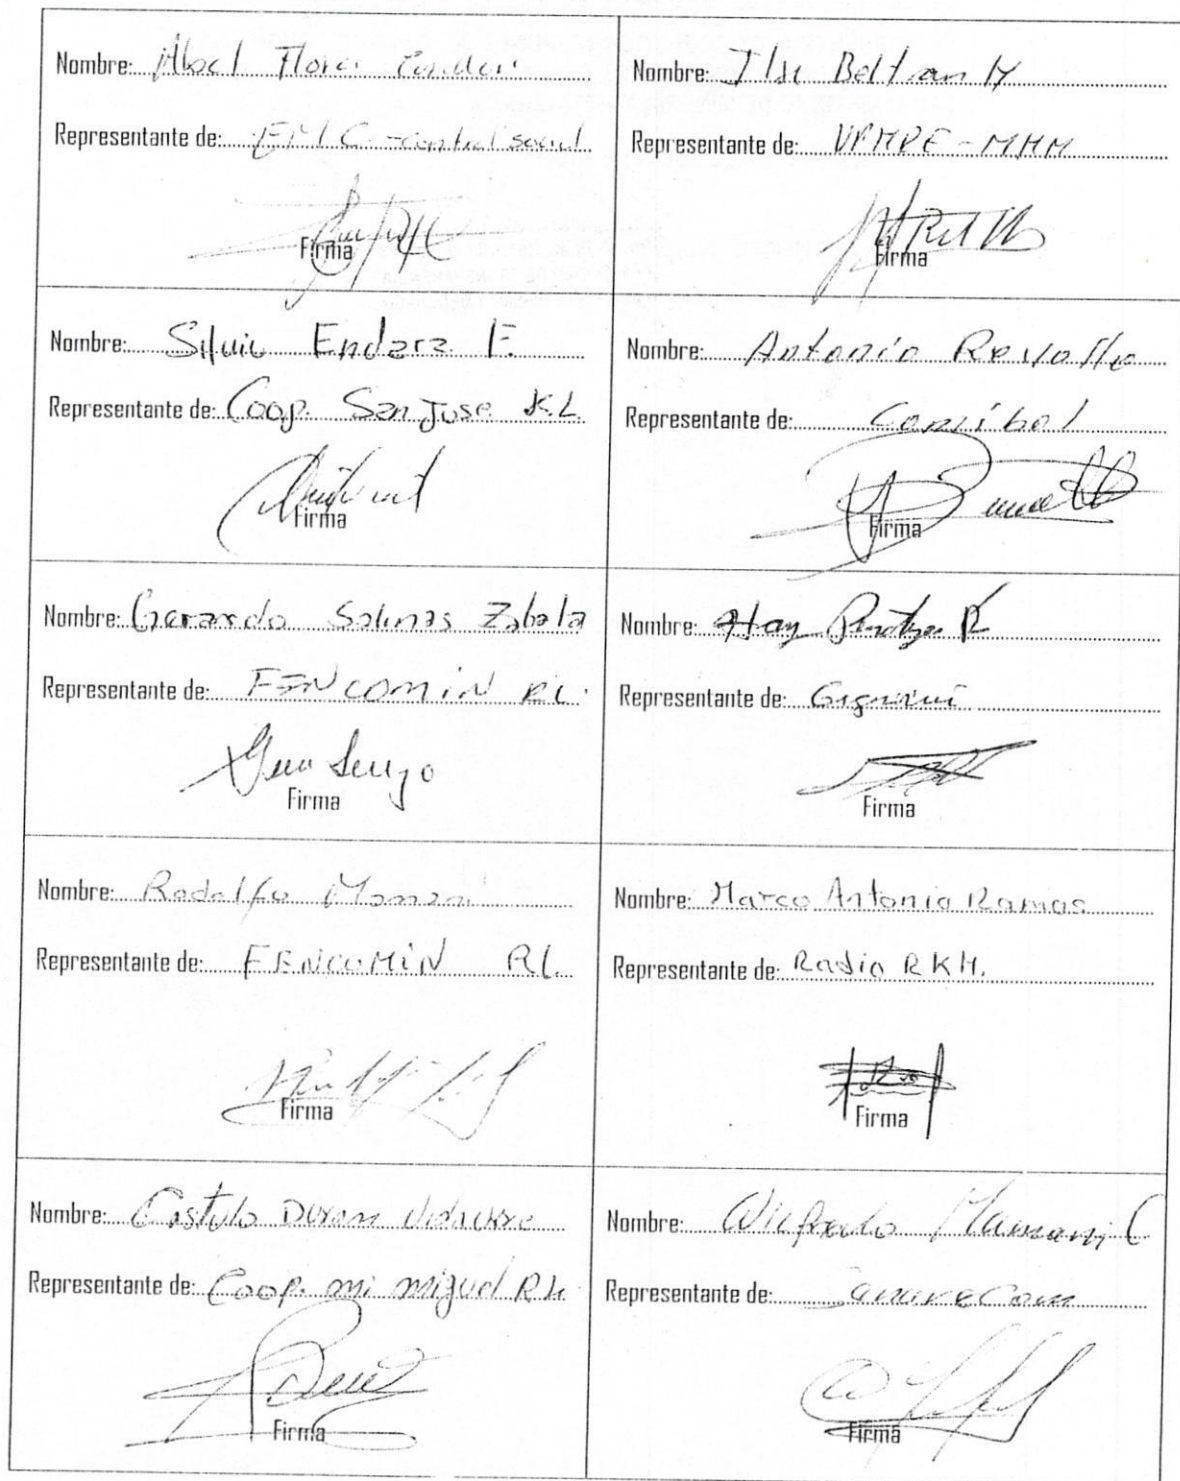 Nombre: Abel Flores Condori
Representante de: EMC - control social
Firma
Nombre: Ilse Beltran M
Representante de: VPMPE - MMM
Firma
Nombre: Silvio Endara F.
Representante de: Coop. San Jose R.L.
Firma
Nombre: Antonio Revollo
Representante de: Comibol
Firma
Nombre: Gerardo Salinas Zabala
Representante de: FENCOMIN RL.
Firma
Nombre:
Representante de:
Firma
Nombre: Rodolfo Mamani
Representante de: FENCOMIN RL.
Firma
Nombre: Marco Antonio Ramos
Representante de: Radio RKM.
Firma
Nombre: Castulo Duran
Representante de: Coop. mi miguel RL
Firma
Nombre: Wilfredo Mamani C
Representante de: Senarecom
Firma